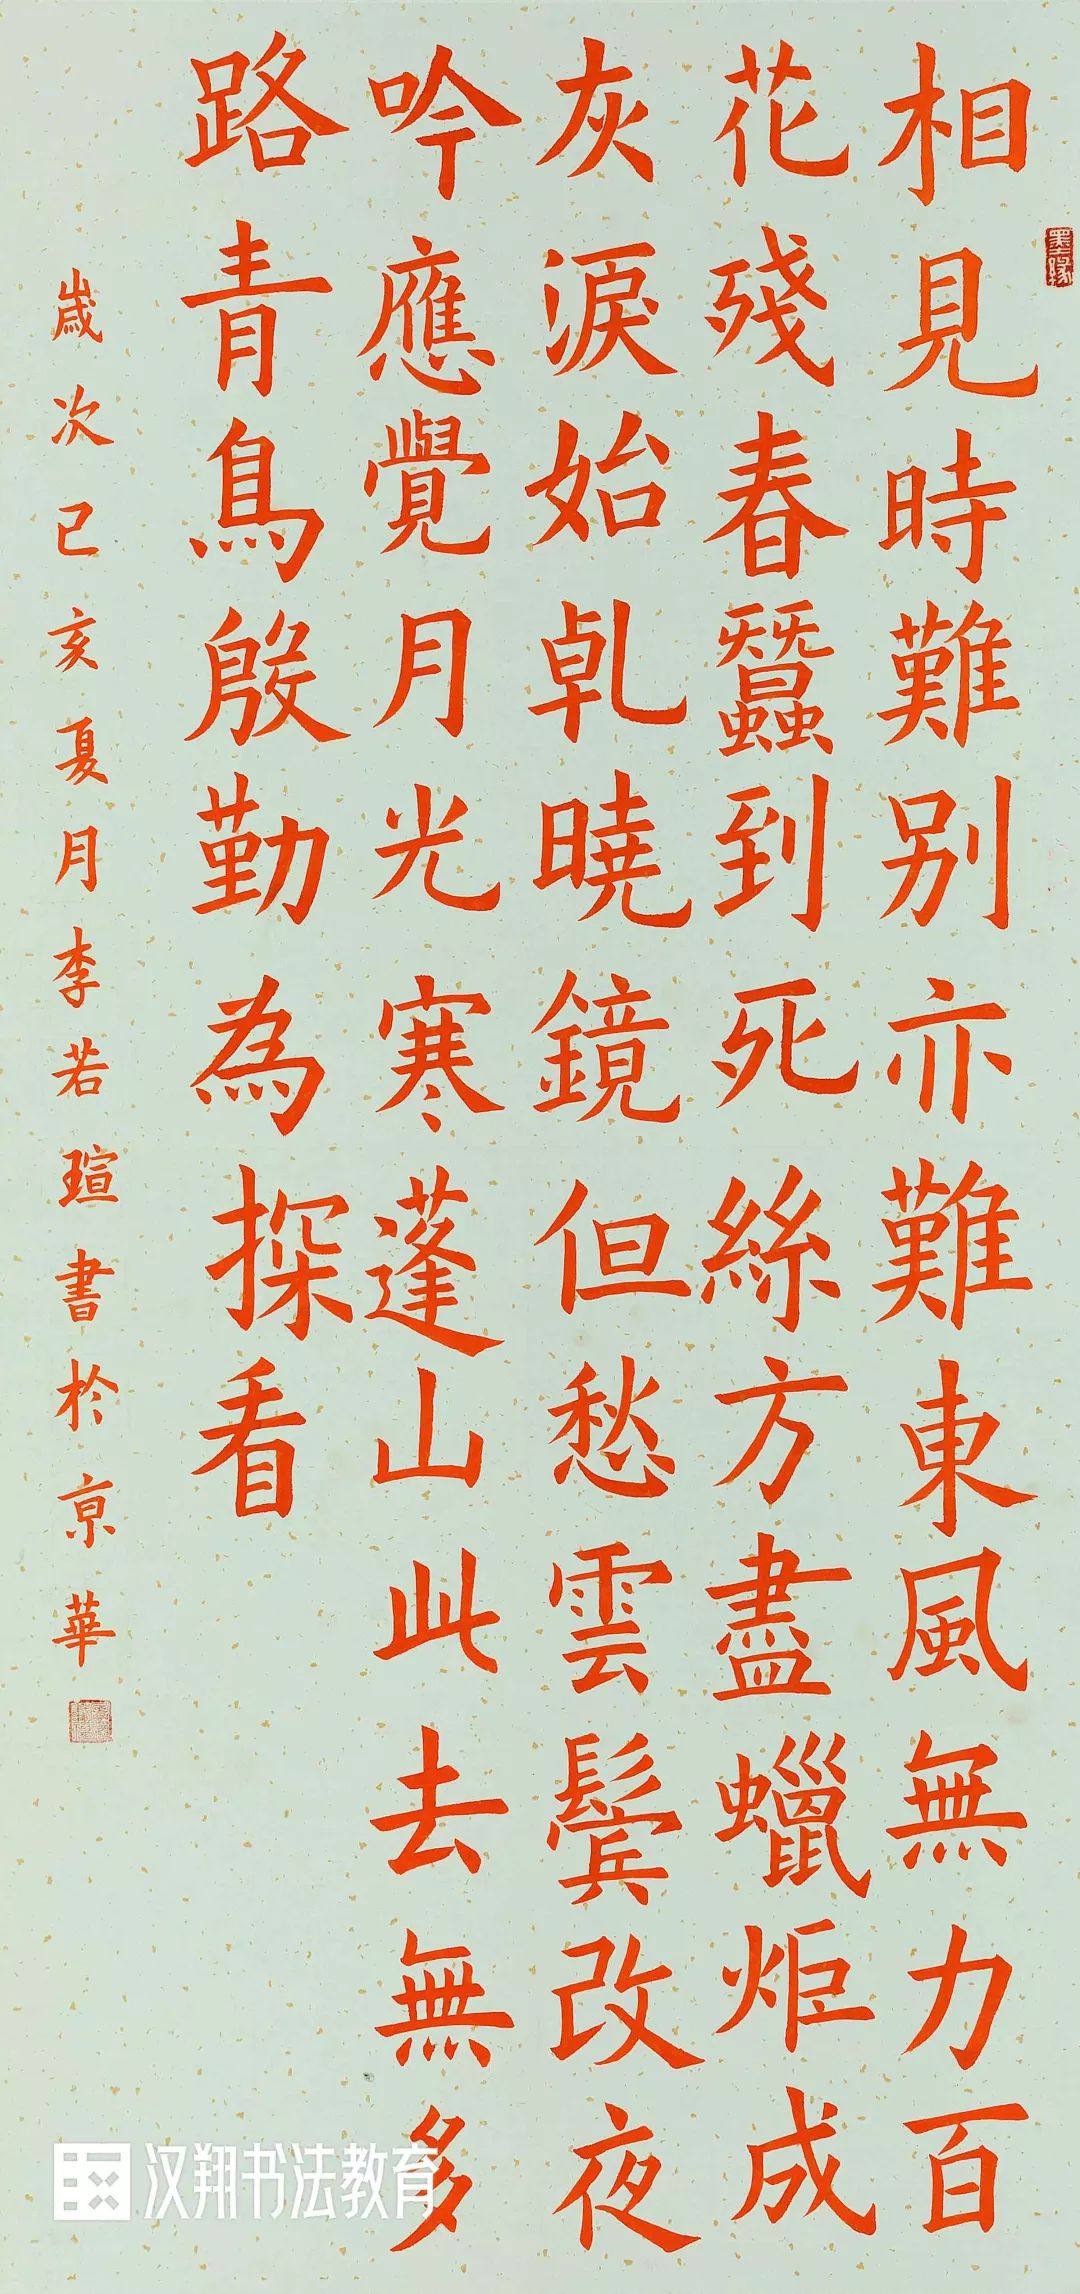 相見時難别亦難東風無力百
花殘春蠶到死絲方盡蠟炬成
灰淚始乹曉鏡但愁雲鬂改夜
吟應覺月光寒蓬山此去無多
路青鳥殷勤為探看
歲次已亥夏月李若瑄書於京華
墨缘
汉翔书法教育